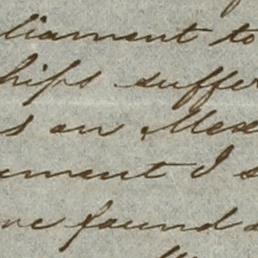 liament to
hips suffer
s on Mex
ement I s
ve found